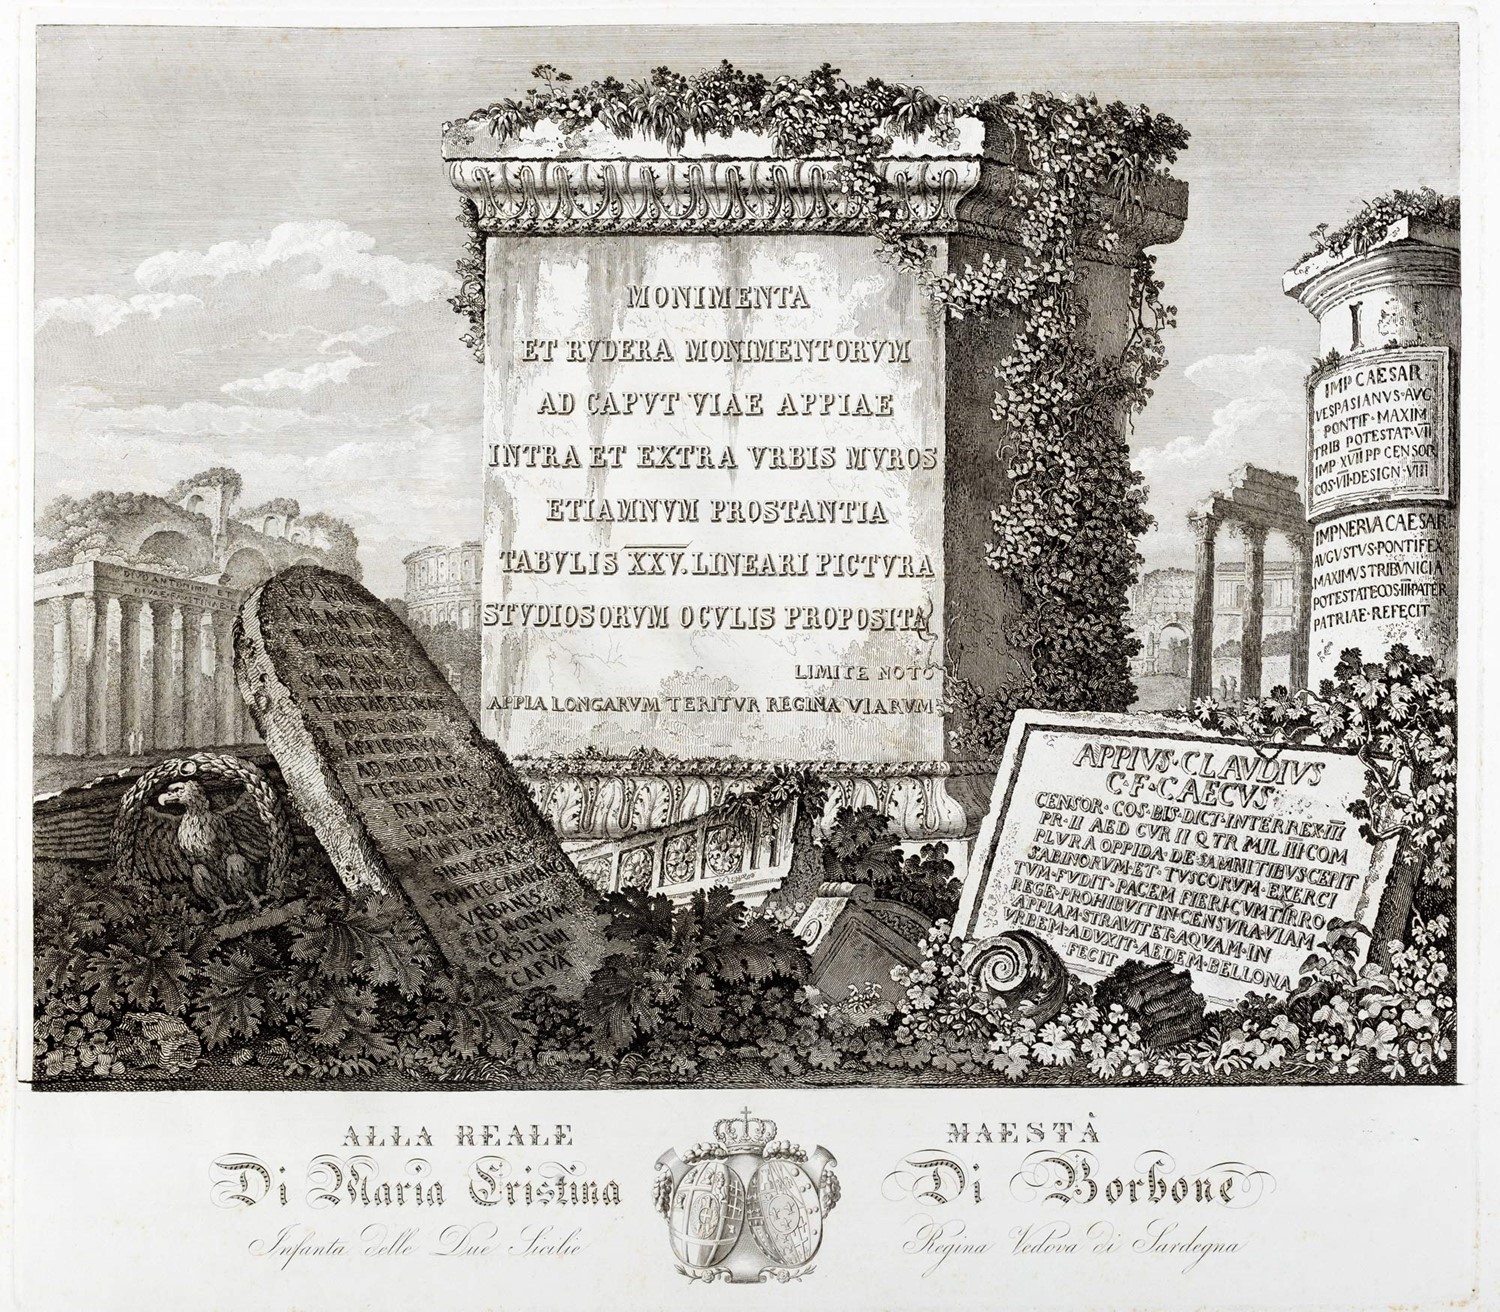 MONIMENTA
ET RVDERA MONIMENTORVM
AD CAPVT VIAE APPIAE
INTRA ET EXTRA VRBIS MVROS
ETIAMNVM PROSTANTIA
TABVLIS XXV. LINEARI PICTVRA
STVDIOSORVM OCVLIS PROPOSITA
LIMITE NOTO
APPIA LONGARVM TERITVR REGINA VIARVM
DIVO ANTONINO ET
DIVAE FAVSTINAE
AD MEDIAS
TERRACINA
FVNDIS
FORMIS
MINTVRNIS
SINVESSA
PONTE CAMPANO
VRBANIS
AD NONVM
CASILINI
CAPVA
IMP CAESAR
VESPASIANVS·AVG
PONTIF·MAXIM
TRIB POTESTAT·VII
IMP XVII PP CENSOR
COS·VII·DESIGN·VIII
IMP NERVA CAESAR
AVGVSTVS·PONTIFEX
MAXIMVS TRIBVNICIA
POTESTATE COS·III PATER
PATRIAE·REFECIT
APPIVS·CLAVDIVS
C·F·CAECVS
CENSOR·COS·BIS·DICT·INTERREX·III
PR·II AED CVR II Q TR MIL III COM
PLVRA OPPIDA·DE·SAMNITIBVS CEPIT
SABINORVM·ET·TVSCORVM·EXERCI
TVM·FVDIT·PACEM FIERI·CVM PIRRO
REGE·PROHIBVIT IN·CENSVRA·VIAM
APPIAM·STRAVIT ET·AQVAM·IN
VRBEM·ADVXIT·AEDEM·BELLONA
FECIT
ALLA REALE MAESTÀ
Di Maria Cristina Di Borbone
Infanta delle Due Sicilie Regina Vedova di Sardegna